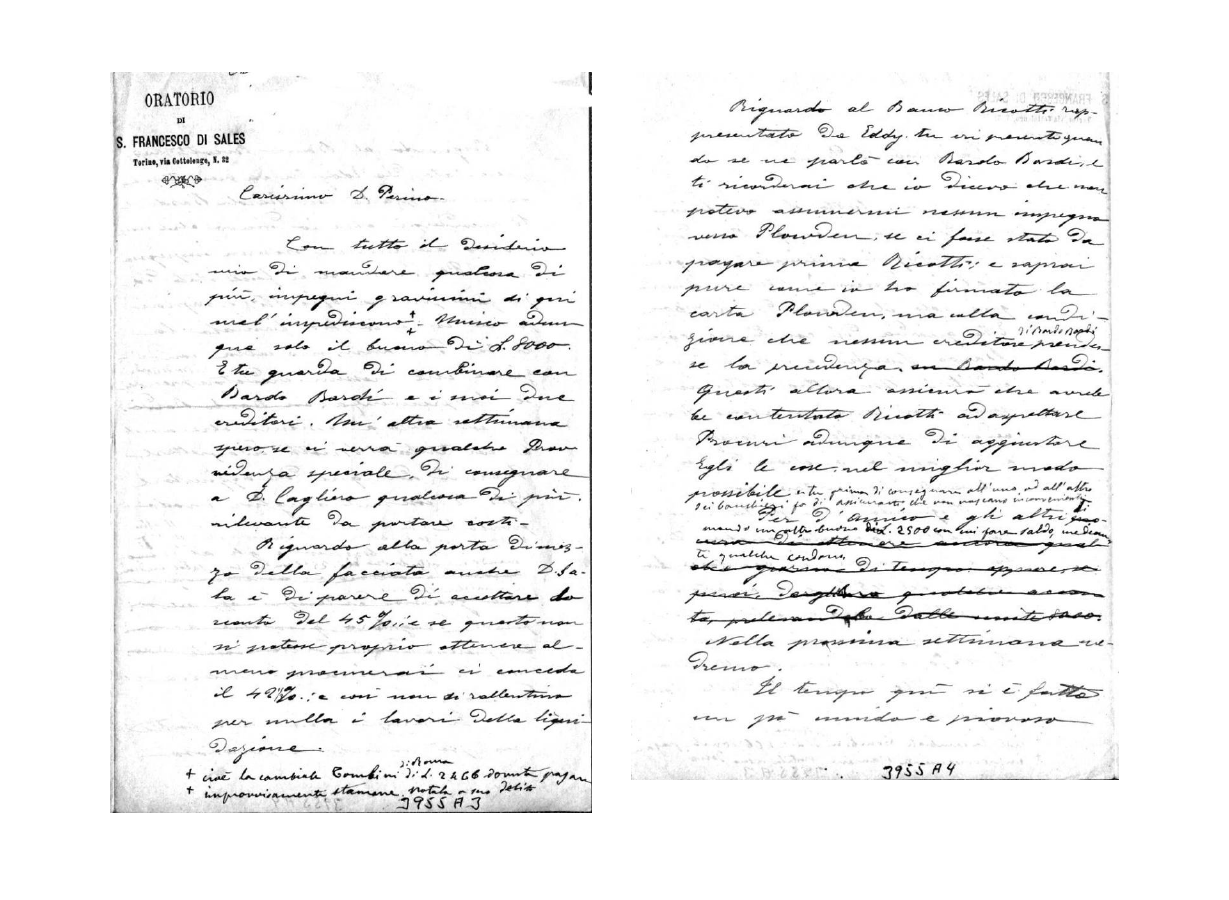 ORATORIO
DI
S. FRANCESCO DI SALES
Torino, via Cottolengo, N. 32
Carissimo D. Perino
Con tutto il desiderio
mio di mandare qualcosa di
più, impegni gravissimi di qui
mel' impediscono +. Unisco adun
que solo il buono di £. 8000.
E tu guarda di combinare con
Bardo Bardi e i suoi due
creditori. Un' altra settimana
spero, se ci verrà qualche Prov
videnza speciale, di consegnare
a D. Cagliero qualcosa di più
rilevante da portare costì.
Riguardo alla porta di mez-
zo della facciata anche D. Sa-
la è di parere di accettare lo
sconto del 45 %.: e se questo non
si potesse proprio ottenere al-
meno procurerai ci conceda
il 42%.: e così non si rallentino
per nulla i lavori della liqui
dazione.
di Roma
+ cioè la cambiale Tombini di L. 2466 dovuta pagare
+ improvvisamente stamane. Notala a suo debito
3955 A 3
Riguardo al Banco Ricotti rap-
presentato da Eddy, tu eri presente quan
do se ne parlò con Bardo Bardi, e
ti ricorderai che io dicevo che non
potevo assumermi nessun impegno
verso Plowden, se ci fosse stato da
pagare prima Ricotti; e saprai
pure come io ho firmato la
carta Plowden, ma colla condi-
zione che nessun creditore prendes-
di Bardo Bardi
se la precedenza su Bardo Bardi.
Questi allora assicurò che avreb
be contentato Ricotti ad aspettare
Procuri adunque di aggiustare
Egli le cose nel miglior modo
possibile e tu prima di consegnare all'uno, ed all'altro
dei banchieri fa di assicurarti, che non nascano inconvenienti
Per D'Amico e gli altri ti
mando un altro buono di L. 2500 con cui fare saldo, median
te qualche condono
che giorno di tempo oppure, se
puoi, dargli qualche accon
to, prelevandolo dalle unite 8000.
Nella prossima settimana ve-
dremo.
Il tempo quì si è fatto
un pò umido e piovoso
3955 A 4